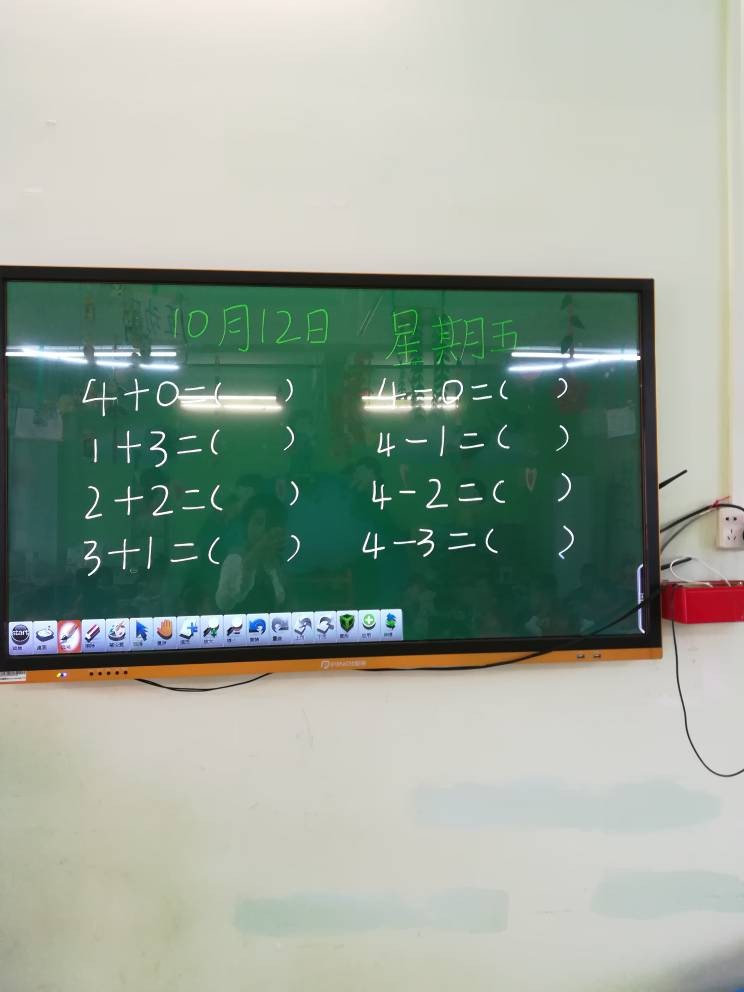 10月12日 星期五
4+0=( ) 4-0=( )
1+3=( ) 4-1=( )
2+2=( ) 4-2=( )
3+1=( ) 4-3=( )
start